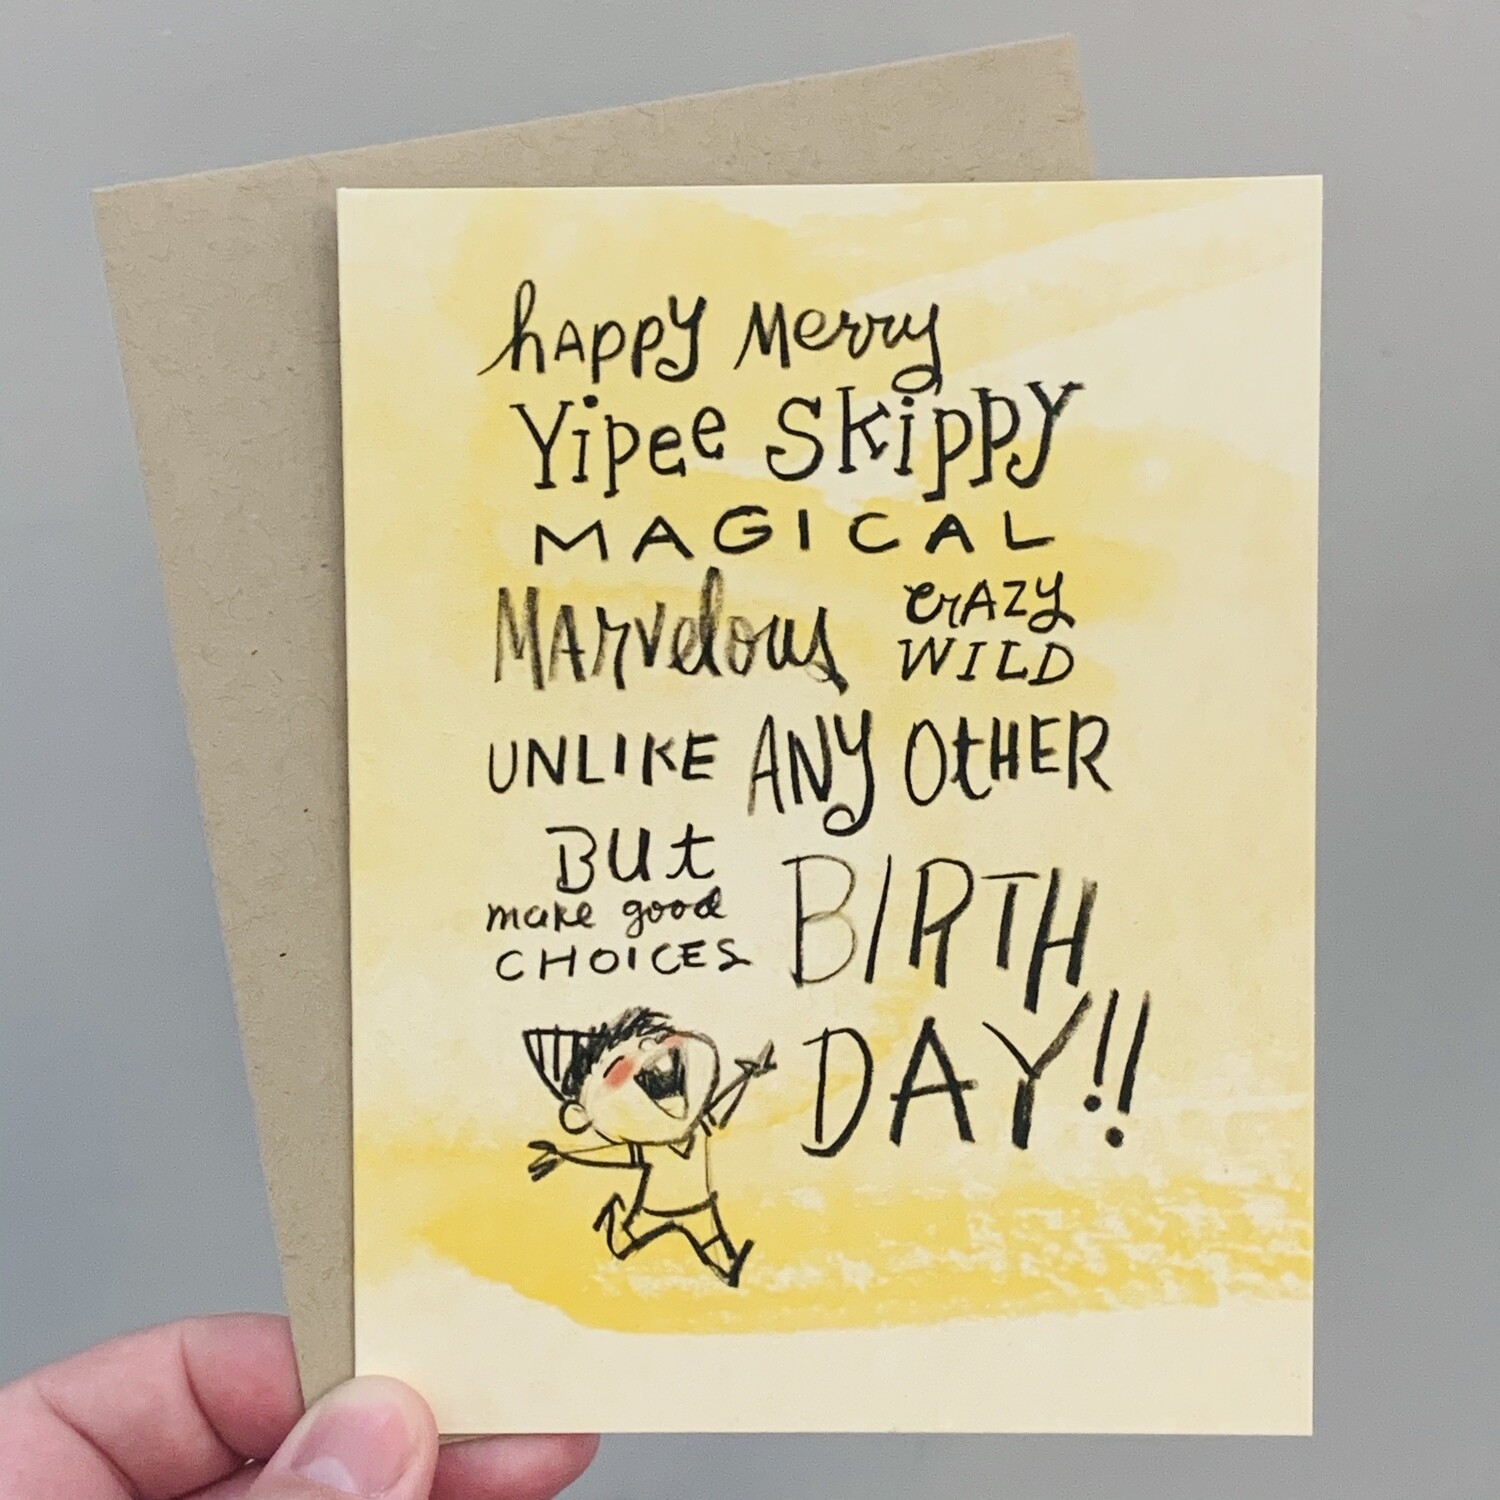 hAPPY Merry
Yipee SKiPPY
MAGICAL
MArvelous crAZY
WILD
UNLIKE ANY OtHER
BUt
make good
CHOICES
BIRTH
DAY!!